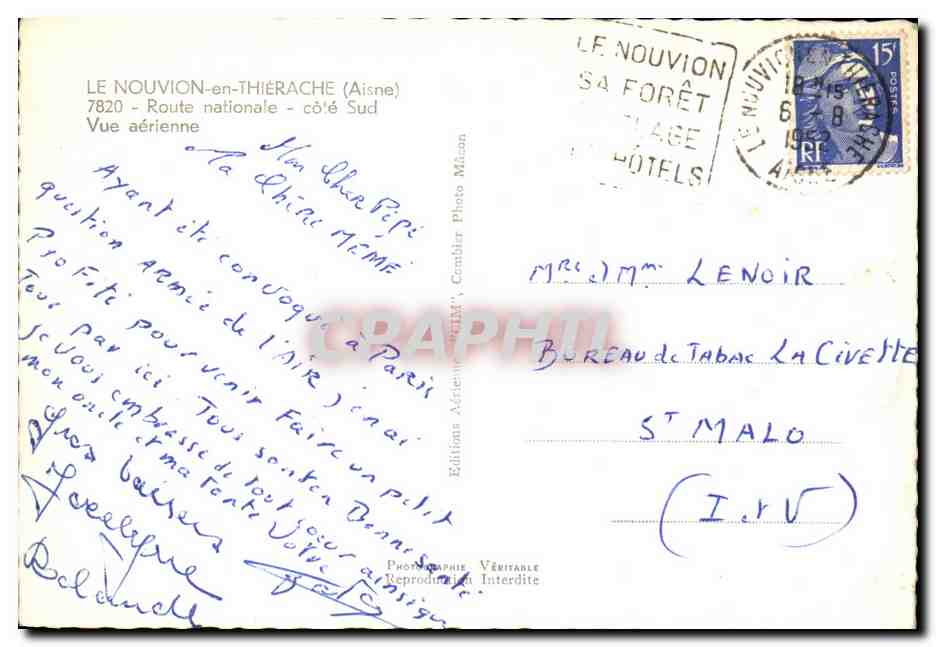 LE NOUVION-en-THIÉRACHE (Aisne)
7820 - Route nationale - côté Sud
Vue aérienne
Mon Cher Pépé
Ma Chère MÉMÉ
Ayant été convoqué à Paris
question ARMÉE de l'AIR j'en ai
Profité pour venir Faire un petit
Tous par ici Tous sont en Bonne santé
je vous embrasse de tout cœur ainsi que
mon oncle et ma tante Votre
Gros baisers
Jocelyne
Rolande
Editions Aériennes "CIM", Combier Photo Mâcon
PHOTOGRAPHIE VÉRITABLE
Reproduction Interdite
LE NOUVION
SA FORÊT
PLAGE
HOTELS
LE NOUVION EN THIERACHE
18H15
6 - 8
1952
AISNE
15F
POSTES
RF
CPAPHIL
Mr et Mme LENOIR
BUREAU de TABAC LA CIVETTE
ST MALO
(I et V)